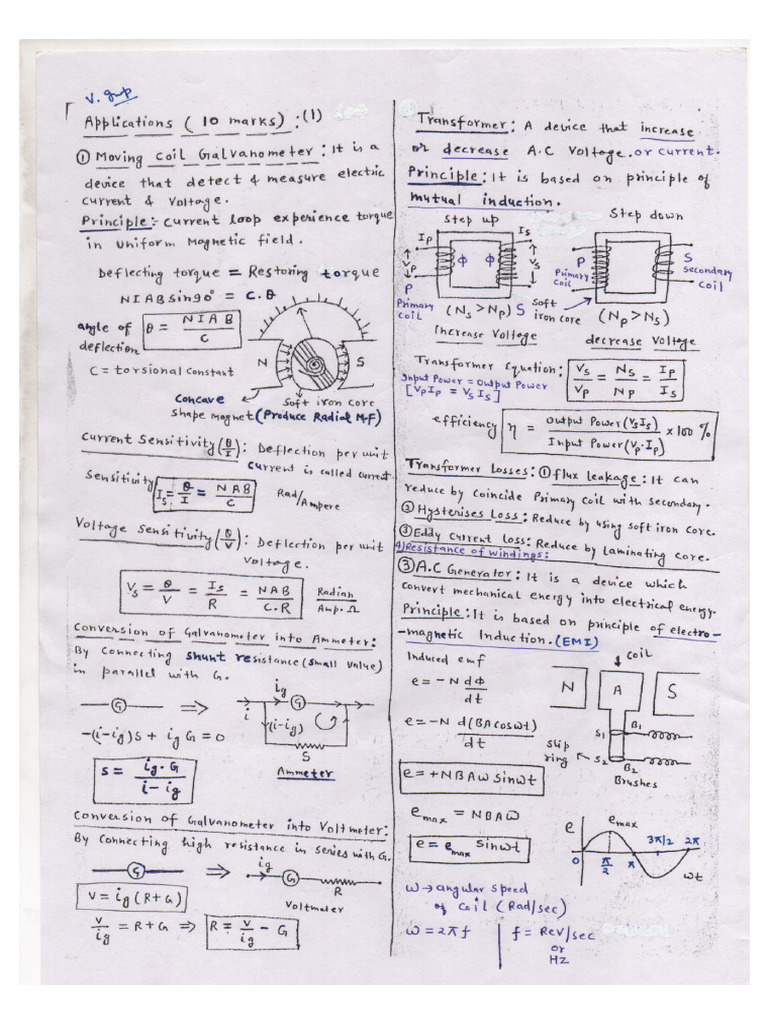 V. Imp
Applications ( 10 marks) : (1)
① Moving coil Galvanometer : It is a
device that detect & measure electric
current & Voltage.
Principle :- Current loop experience torque
in uniform Magnetic field.
Deflecting torque = Restoring torque
NIABsin90° = C.θ
angle of deflection
θ = NIAB / C
C = torsional constant
N S
Concave
shape magnet (Produce Radial M.F)
Soft iron core
Current Sensitivity (θ/I) : Deflection per unit
current is called current
Sensitivity
I_s = θ/I = NAB/C Rad/Ampere
Voltage Sensitivity (θ/V) : Deflection per unit
Voltage.
V_s = θ/V = I_s/R = NAB/C.R Radian/Amp.Ω
Conversion of Galvanometer into Ammeter :
By Connecting shunt resistance (small value)
in parallel with G.
G ⇒ i i_g G (i-i_g) S
-(i-i_g)S + i_g G = 0
S = i_g.G / i-i_g
Ammeter
Conversion of Galvanometer into Voltmeter :
By Connecting high resistance in series with G.
G ⇒ i_g G R
Voltmeter
V = i_g (R+G)
V/i_g = R+G ⇒ R = V/i_g - G
Transformer : A device that increase
or decrease A.C Voltage. or current.
Principle : It is based on principle of
mutual induction.
Step up Step down
I_P I_S V_P V_S Φ Φ P S
Primary coil
(N_S > N_P)
Soft iron core
P Primary coil
S secondary coil
(N_P > N_S)
Increase Voltage decrease Voltage
Transformer Equation : V_S/V_P = N_S/N_P = I_P/I_S
Input Power = Output Power
[V_P I_P = V_S I_S]
efficiency η = Output Power (V_S I_S) / Input Power (V_P.I_P) x 100 %
Transformer Losses : ① flux leakage : It can
reduce by coincide Primary coil with secondary.
② Hysterises Loss : Reduce by using soft iron core.
③ Eddy Current Loss : Reduce by Laminating core.
4) Resistance of windings :
③ A.C Generator : It is a device which
convert mechanical energy into electrical energy.
Principle : It is based on principle of electro-
-magnetic Induction. (EMI)
Induced emf
e = - N dΦ/dt
e = - N d(BAcosωt)/dt
e = + NBAω sinωt
e_max = NBAω
e = e_max sinωt
coil
N A S
S_1 B_1
Slip ring
S_2 B_2
Brushes
e e_max
0 π/2 π 3π/2 2π
ωt
ω → angular speed
of coil (Rad/sec)
ω = 2πf f = Rev/sec
or
HZ